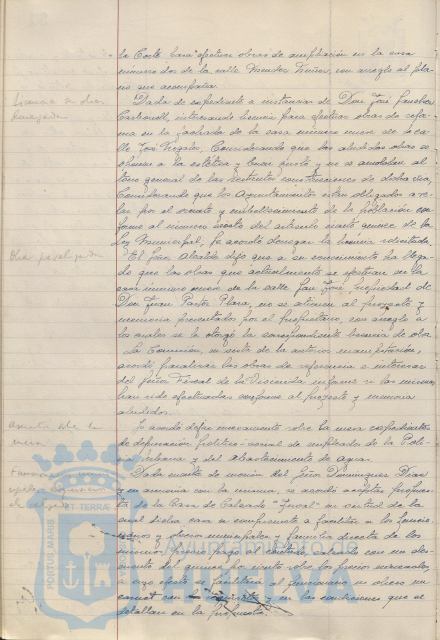 la Corte para efectuar obras de ampliación en la casa
número dos de la calle Mendez Nuñez, con arreglo al plano
que acompaña.
Dada de expediente a instancia de Don José Sanchez
Carbonell, interesando licencia para efectuar obras de reforma
en la fachada de la casa número nueve de la calle
José Nogales, Considerando que las aludidas obras se
oponen a la estética y buen gusto y no se amoldan al
tono general de las restantes construcciones de dicha via,
Considerando que los Ayuntamientos estan obligados a velar
por el ornato y embellecimiento de la población conforme
al número sexto del artículo ciento quince de la
Ley Municipal, se acordó denegar la licencia solicitada.
El Señor Alcalde dijo que a su conocimiento ha llegado
que las obras que actualmente se efectuan en la
casa número nueve de la calle San José, propiedad de
Don Juan Pastor Plana, no se atienen al proyecto y
memoria presentados por el propietario, con arreglo a
los cuales se le otorgó la correspondiente licencia de obra
La Comisión, en vista de la anterior manifestación,
acordó paralizar las obras de referencia e interesar
del Señor Fiscal de la Vivienda informe si las mismas
han sido efectuadas conforme al proyecto y memoria
aludidos.
Se acordó dejar nuevamente sobre la mesa expedientes
de depuración político-social de empleados de la Policia
Urbana y del abastecimiento de agua.
Dada cuenta de moción del Señor Dominguez Diaz
y en armonia con la misma, se acordó aceptar propuesta
de la Casa de Calzado "Segarra" en virtud de la
cual dicha casa se compromete a facilitar a los funcionarios
y obreros municipales y familia directa de los
mismos
descuento del quince por ciento sobre los precios marcados,
a cuyo efecto se facilitará al funcionario u obrero un
carnet con
y en las condiciones que se
detallan en la propuesta.
Licencia de obras
denegada
Obra paralizada
Asunto sobre la
mesa
PORTUS MARIS
ET TERRÆ
Ayuntamiento de
HUELVA